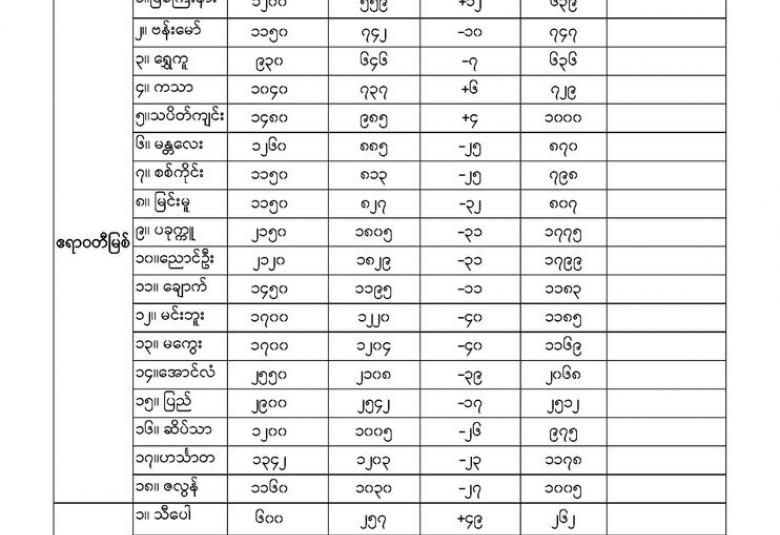 ၁၂၀၀ ၅၅၉ +၁၂ ၆၃၉
၂။ ဗန်းမော် ၁၁၅၀ ၇၄၂ -၁၀ ၇၄၇
၃။ ရွှေကူ ၉၃၀ ၆၄၆ -၇ ၆၃၆
၄။ ကသာ ၁၀၄၀ ၇၃၇ +၆ ၇၂၉
၅။သပိတ်ကျင်း ၁၄၈၀ ၉၈၅ +၄ ၁၀၀၀
၆။ မန္တလေး ၁၂၆၀ ၈၈၅ -၂၅ ၈၇၀
၇။ စစ်ကိုင်း ၁၁၅၀ ၈၁၃ -၂၅ ၇၉၈
၈။ မြင်းမူ ၁၁၅၀ ၈၂၇ -၃၂ ၈၀၇
ဧရာဝတီမြစ် ၉။ ပခုက္ကူ ၂၁၅၀ ၁၈၀၅ -၃၁ ၁၇၇၅
၁၀။ညောင်ဦး ၂၁၂၀ ၁၈၂၉ -၃၁ ၁၇၉၉
၁၁။ ချောက် ၁၄၅၀ ၁၁၉၅ -၁၁ ၁၁၈၃
၁၂။ မင်းဘူး ၁၇၀၀ ၁၂၂၀ -၄၀ ၁၁၈၅
၁၃။ မကွေး ၁၇၀၀ ၁၂၀၄ -၄၀ ၁၁၆၉
၁၄။အောင်လံ ၂၅၅၀ ၂၁၀၈ -၃၉ ၂၀၆၈
၁၅။ ပြည် ၂၉၀၀ ၂၅၄၂ -၁၇ ၂၅၁၂
၁၆။ ဆိပ်သာ ၁၂၀၀ ၁၀၀၅ -၂၆ ၉၇၅
၁၇။ဟင်္သာတ ၁၃၄၂ ၁၂၀၃ -၂၃ ၁၁၇၈
၁၈။ ဇလွန် ၁၁၆၀ ၁၀၃၀ -၂၇ ၁၀၀၅
၁။ သီပေါ ၆၀၀ ၂၅၇ +၄၉ ၂၆၂